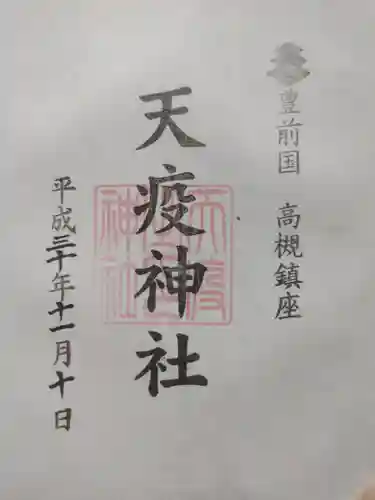 豊前国 高槻鎮座
天疫神社
天疫神社
平成三十年十一月十日